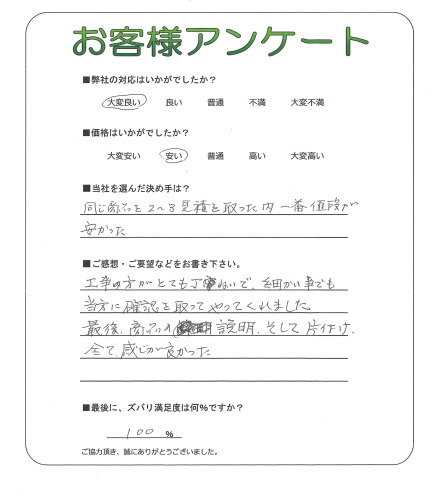 お客様アンケート
■弊社の対応はいかがでしたか?
大変良い 良い 普通 不満 大変不満
■価格はいかがでしたか?
大変安い 安い 普通 高い 大変高い
■当社を選んだ決め手は?
同じ商品を2〜3見積を取った内 一番値段が
安かった
■ご感想・ご要望などをお書き下さい。
工事の方がとても丁寧ねいで、細かい事でも
当方に確認を取ってやってくれました
最後、商品の 説明、そして片付け、
全て感じが良かった
■最後に、ズバリ満足度は何%ですか?
100 %
ご協力頂き、誠にありがとうございました。